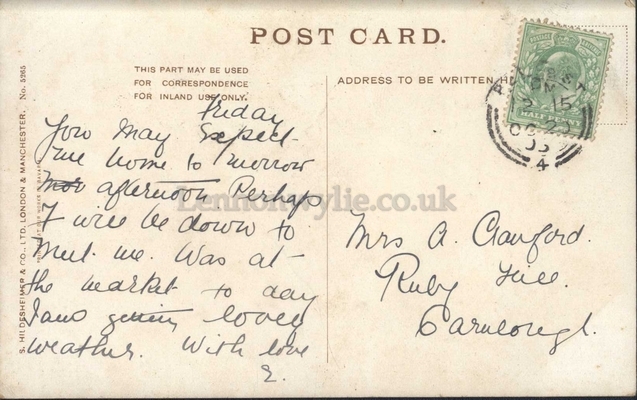 POST CARD.
THIS PART MAY BE USED
FOR CORRESPONDENCE
FOR INLAND USE ONLY.
ADDRESS TO BE WRITTEN
S. HILDESHEIMER & CO., LTD. LONDON & MANCHESTER. No. 5265
Friday
You may Expect
me home to morrow
afternoon Perhaps
will be down to
meet me. Was at
the market to day
getting lovely
weather. With love
E.
Mrs A. Crawford.
Ruby Hill.
2.15
4
Lennonwylie.co.uk